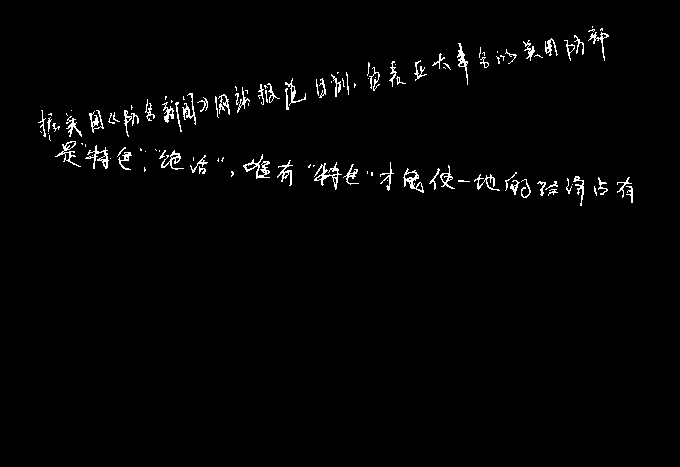 据美国《防务新闻》网站报道日前,负责亚太事务的美国防部
是“特色”,“绝活”,唯有“特色”才能使一地的经济占有